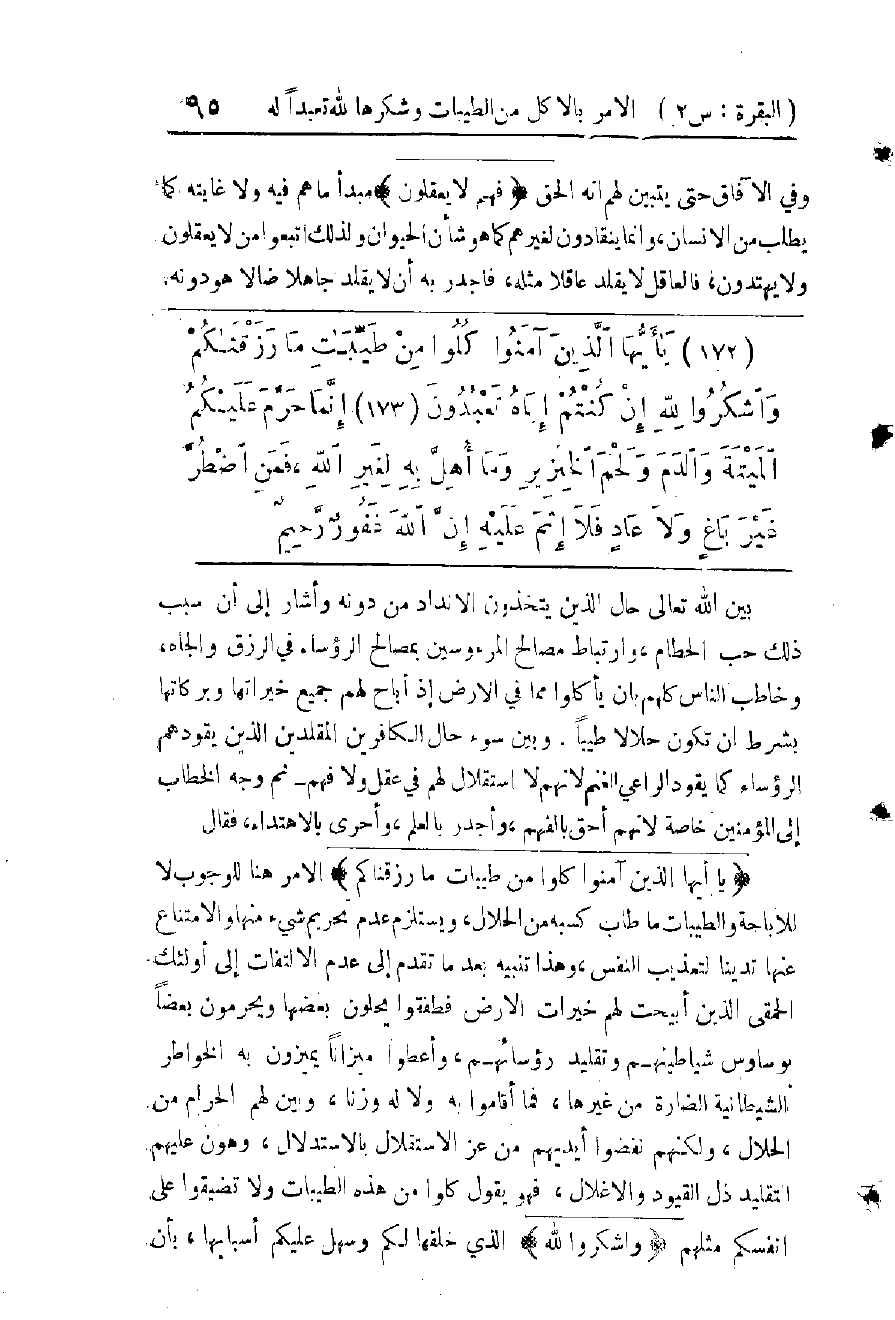 ( البقرة : س ٢ ) الامر بالاكل من الطيبات وشكرها لله تعبداً له ٩٥
وفي الآفاق حتى يتبين لهم انه الحق ﴿ فهم لا يعقلون ﴾ مبدأ ما هم فيه ولا غايته كما
يطلب من الانسان، وانما ينقادون لغيرهم كما هو شأن الحيوان ولذلك اتبعوا من لا يعقلون
ولا يهتدون، فالعاقل لا يقلد عاقلا مثله، فاجدر به أن لا يقلد جاهلا ضالا هو دونه.
(١٧٢) يَٰأَيُّهَا ٱلَّذِينَ آمَنُوا كُلُوا مِنْ طَيِّبَٰتِ مَا رَزَقْنَٰكُمْ
وَٱشْكُرُوا لِلهِ إِنْ كُنْتُمْ إِيَّاهُ تَعْبُدُونَ (١٧٣) إِنَّمَا حَرَّمَ عَلَيْكُمُ
ٱلْمَيْتَةَ وَٱلدَّمَ وَلَحْمَ ٱلْخِنْزِيرِ وَمَا أُهِلَّ بِهِ لِغَيرِ ٱللهِ ، فَمَنِ ٱضْطُرَّ
غَيْرَ بَاغٍ وَلَا عَادٍ فَلَا إِثْمَ عَلَيْهِ إِنَّ ٱللهَ غَفُورٌ رَّحِيمٌ
بين الله تعالى حال الذين يتخذون الانداد من دونه وأشار إلى أن سبب
ذلك حب الحطام ، وارتباط مصالح المرءوسين بمصالح الرؤساء في الرزق والجاه،
وخاطب الناس كلهم بان يأكلوا مما في الارض إذ أباح لهم جميع خيراتها وبركاتها
بشرط ان تكون حلالا طيباً . وبين سوء حال الكافرين المقلدين الذين يقودهم
الرؤساء كما يقود الراعي الغنم لانهم لا استقلال لهم في عقل ولا فهم ـ ثم وجه الخطاب
إلى المؤمنين خاصة لانهم أحق بالفهم ، وأجدر بالعلم ، وأحرى بالاهتداء، فقال
﴿ يا أيها الذين آمنوا كلوا من طيبات ما رزقناكم ﴾ الامر هنا للوجوب لا
للاباحة والطيبات ما طاب كسبه من الحلال، ويستلزم عدم تحريم شيء منها والامتناع
عنها تدينا لتعذيب النفس ، وهذا تنبيه بعد ما تقدم إلى عدم الالتفات إلى أولئك
الحمقى الذين أبيحت لهم خيرات الارض فطفقوا يحلون بعضها ويحرمون بعضاً
بوساوس شياطينهم وتقليد رؤسائهم ، وأعطوا ميزاناً يميزون به الخواطر
الشيطانية الضارة من غيرها ، فما أقاموا به ولا له وزنا ، وبين لهم الحرام من
الحلال ، ولكنهم نفضوا أيديهم من عز الاستقلال بالاستدلال ، وهون عليهم
التقليد ذل القيود والاغلال ، فهو يقول كلوا من هذه الطيبات ولا تضيقوا على
انفسكم مثلهم ﴿ واشكروا لله ﴾ الذي خلقها لكم وسهل عليكم أسبابها ، بأن